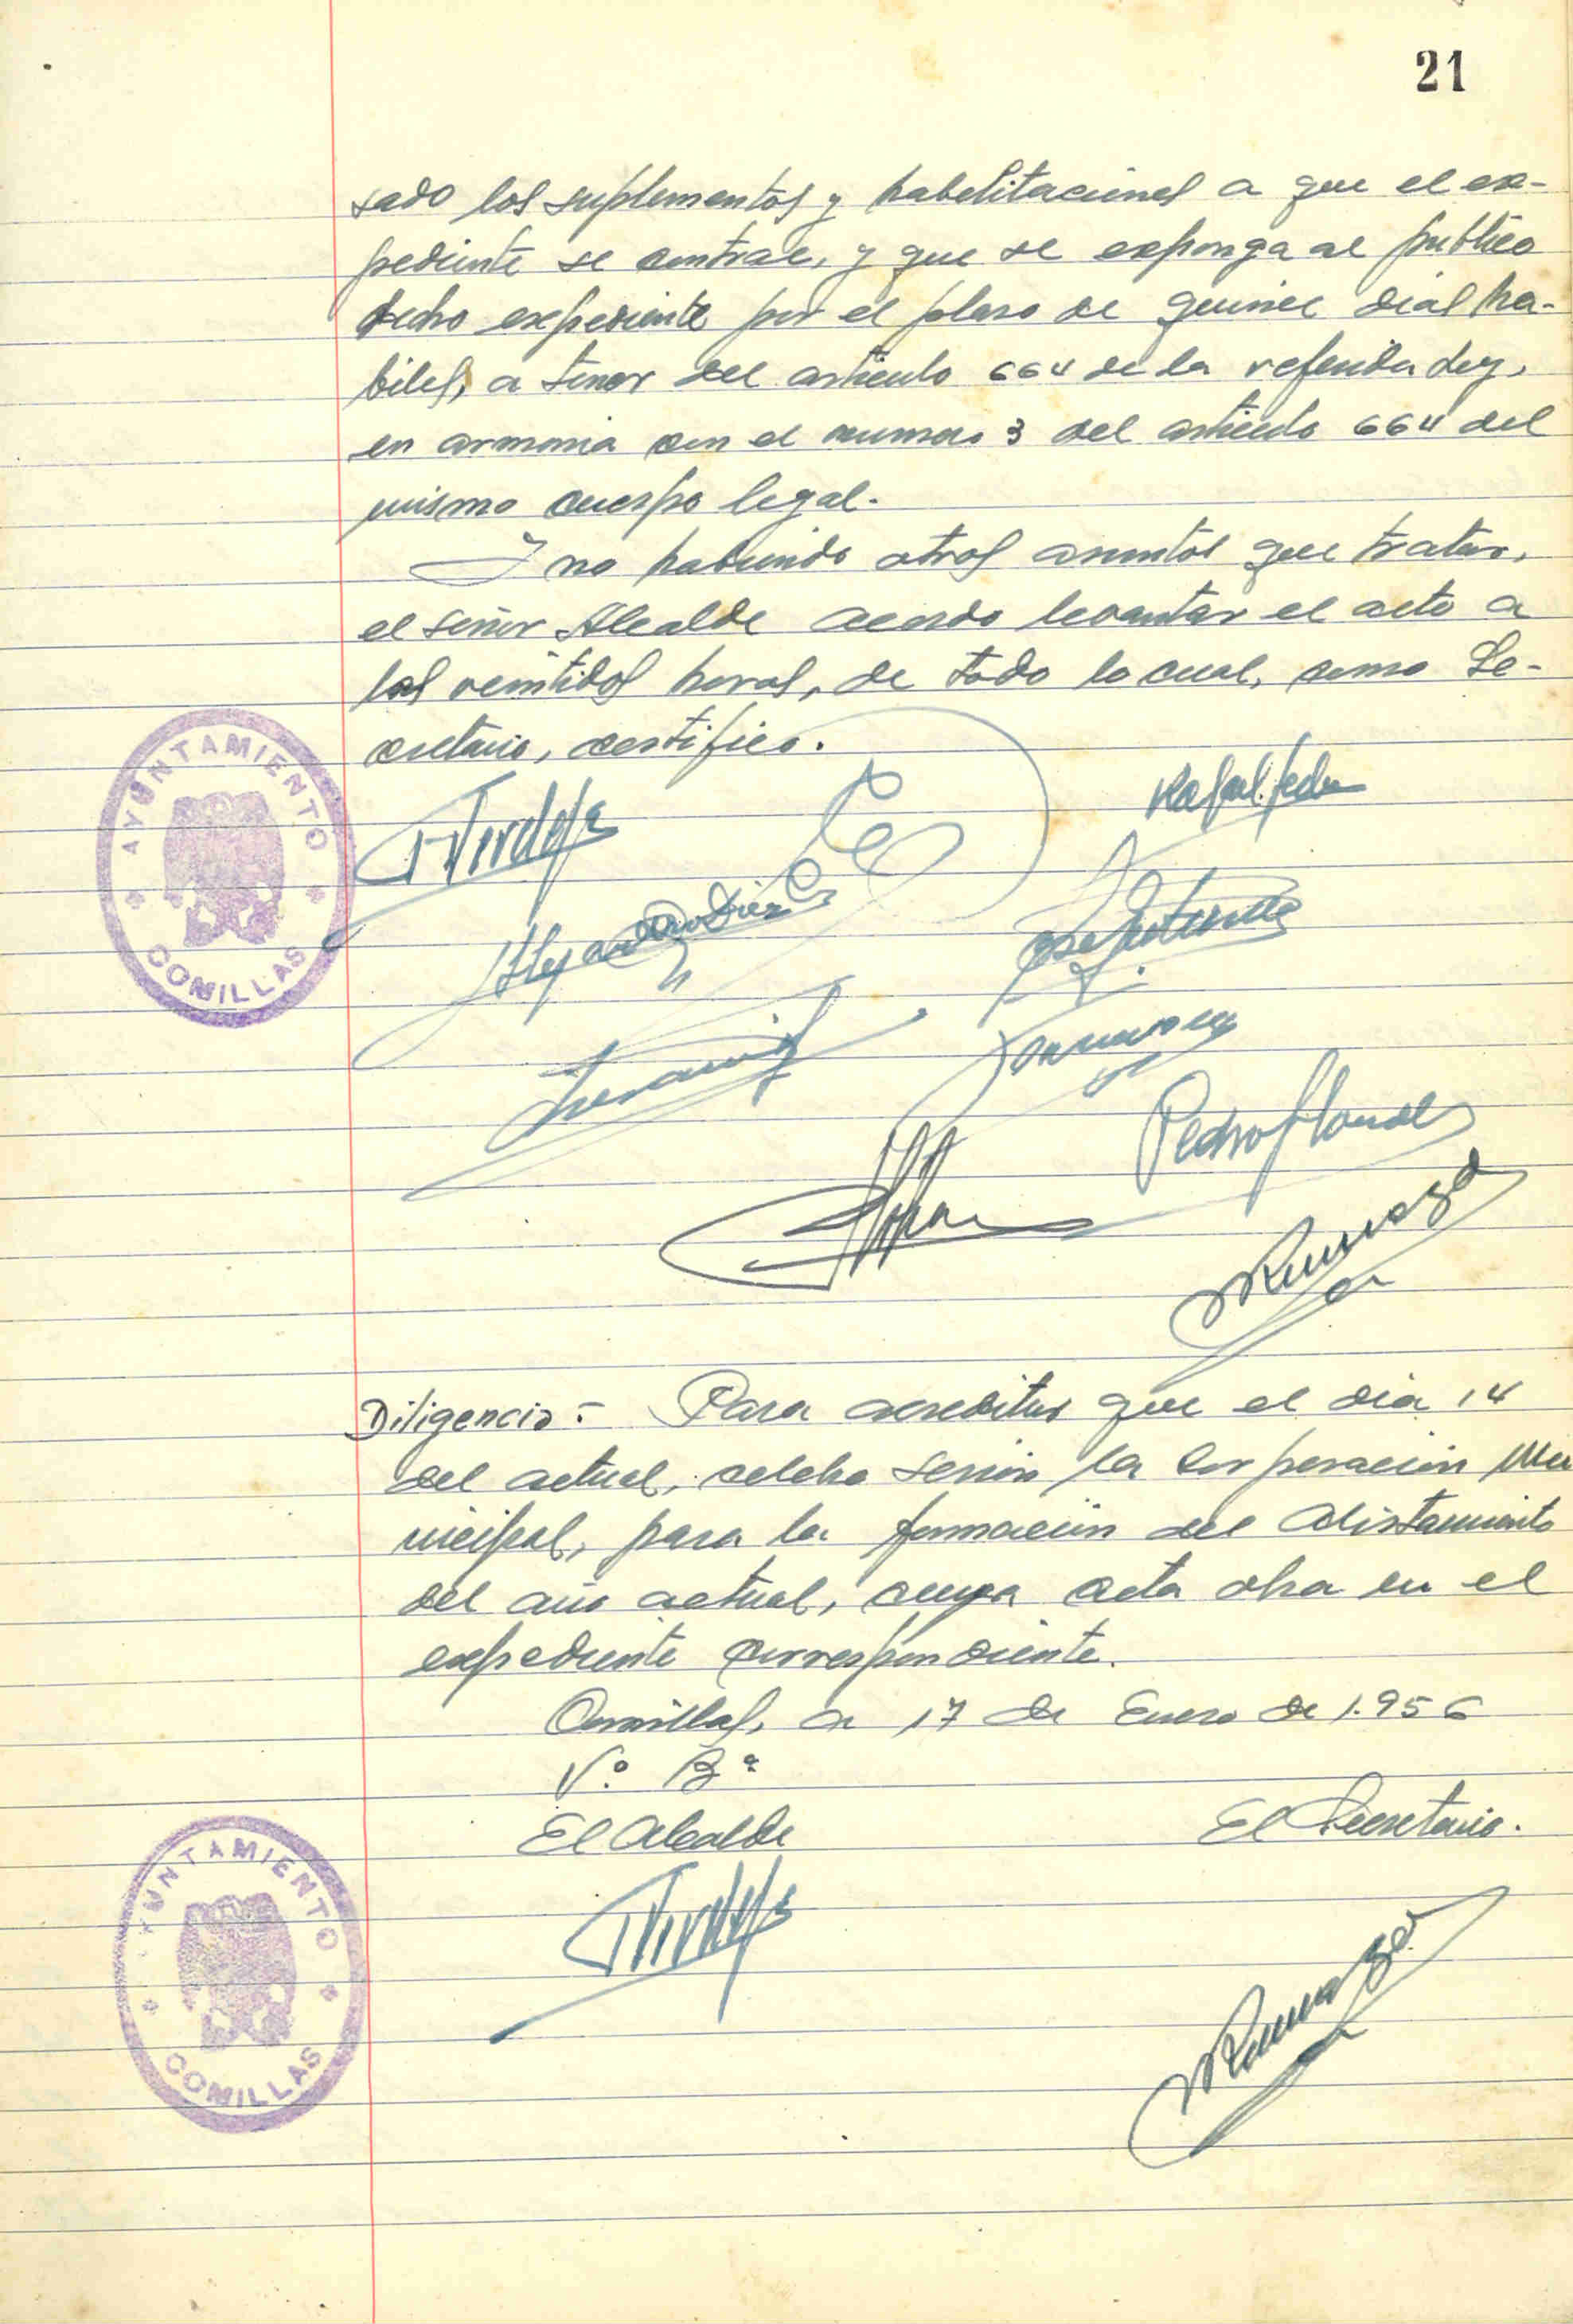 21
sado los suplementos y habilitaciones a que el ex-
pediente se contrae, y que se exponga al publico
dicho expediente por el plaso de quince dias ha-
biles, a tenor del articulo 664 de la referida Ley,
en armonia con el numero 3 del articulo 664 del
mismo cuerpo legal.-
Y no habiendo otros asuntos que tratar,
el señor Alcalde acordo levantar el acto a
las veintidos horas, de todo lo cual, como Se-
cretario, certifico.
AYUNTAMIENTO
COMILLAS
Rafael
Alejandro Diez
Pedro
Diligencia:- Para acreditar que el dia 14
del actual, celebro sesion la Corporacion Mu
nicipal, para la formacion del Alistamiento
del año actual, cuya acta obra en el
expediente correspondiente.
Comillas, a 17 de Enero de 1.956
Vº Bº
El Alcalde
El Secretario.
AYUNTAMIENTO
COMILLAS